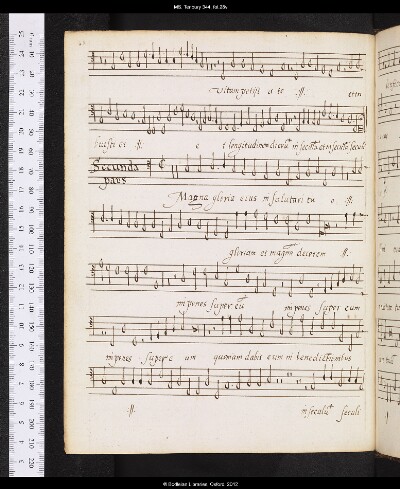 MS. Tenbury 344, fol.28v
Vitam petijt a te :||: etin
buisti ei :||: e t longitudinem dierũ in secula et in secula seculi
Secunda
pars
Magna gloria eius in salutari tu o :||:
gloriam et magnũ decorem :||:
impones super eũ impones super eum
impones super e um quoniam dabis eum in benedictionibus
:||: in seculũ seculi
© Bodleian Libraries, Oxford, 2012